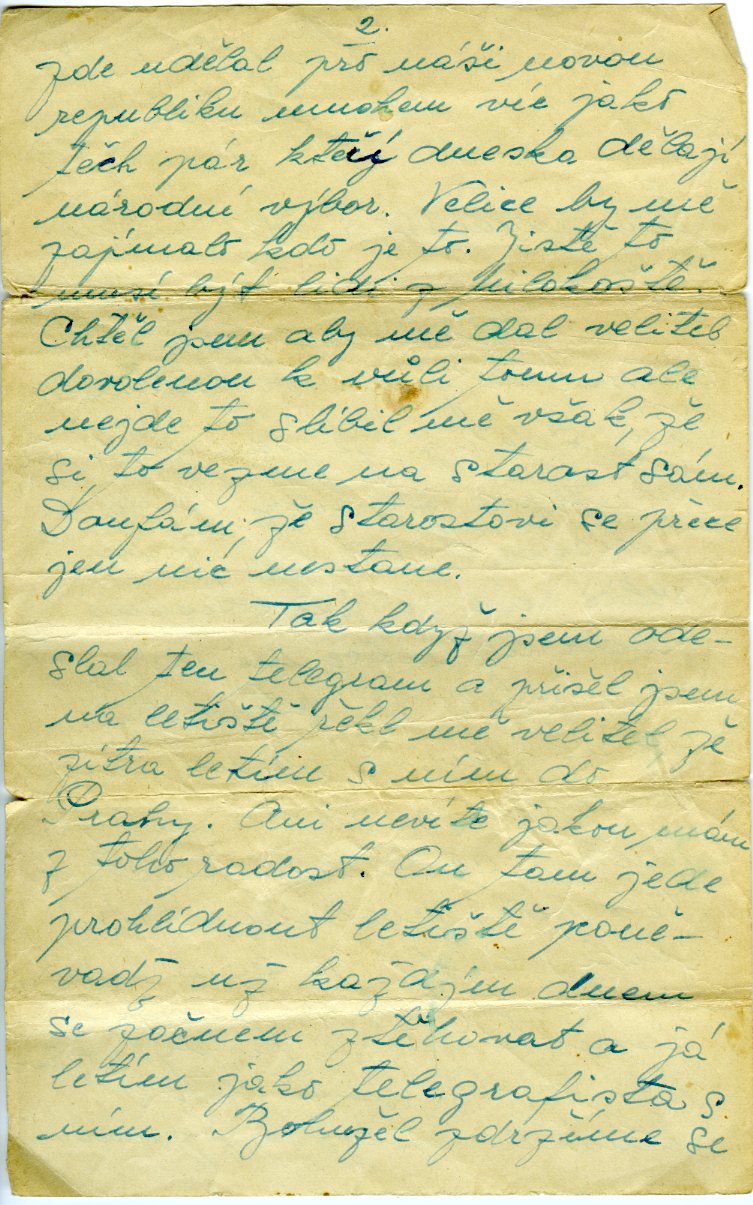 2.
zde udělal pro náši novou
republiku mnohem víc jako
těch pár kteří dneska dělají
národní výbor. Velice by mě
zajímalo kdo je to. Jistě to
musí být lidi z Milokoště.
Chtěl jsem aby mě dal velitel
dovolenou k vůli tomu ale
nejde to slíbil mě však, že
si to vezme na starost sám.
Doufám, že starostovi se přece
jen nic nestane.
Tak když jsem ode-
slal ten telegram a přišel jsem
na letiště řekl mě velitel že
zítra letím s ním do
Prahy. Ani nevíte jakou mám
z toho radost. On tam jede
prohlídnout letiště poně-
vadž už každým dnem
se začnem ztěhovat a já
letím jako telegrafista s
ním. Bohužel zdržíme se